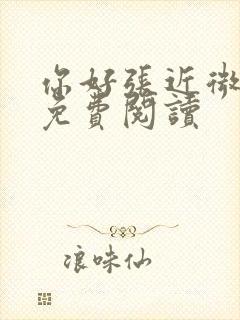 你好張近微
免費閱讀
浪味仙